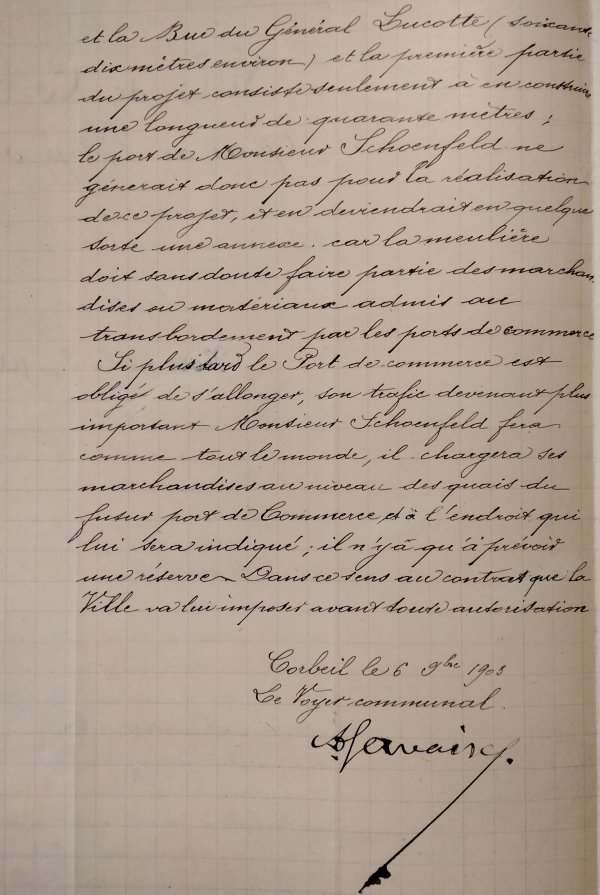 et la Rue du Général Lucotte (soixante
dix mètres environ) et la première partie
du projet consiste seulement à en construire
une longueur de quarante mètres ;
le port de Monsieur Schoenfeld ne
gênerait donc pas pour la réalisation
de ce projet, et en deviendrait en quelque
sorte une annexe. car la meulière
doit sans doute faire partie des marchan
dises ou matériaux admis au
transbordement par les ports de commerce
Si plus tard le Port de commerce est
obligé de s'allonger, son trafic devenant plus
important Monsieur Schoenfeld fera
comme tout le monde, il chargera ses
marchandises au niveau des quais du
futur port de Commerce, et à l'endroit qui
lui sera indiqué ; il n'y à qu'à prévoir
une réserve Dans ce sens au contrat que la
Ville va lui imposer avant toute autorisation
Corbeil le 6 9bre 1903
Le Voyer communal.
A. Gervais